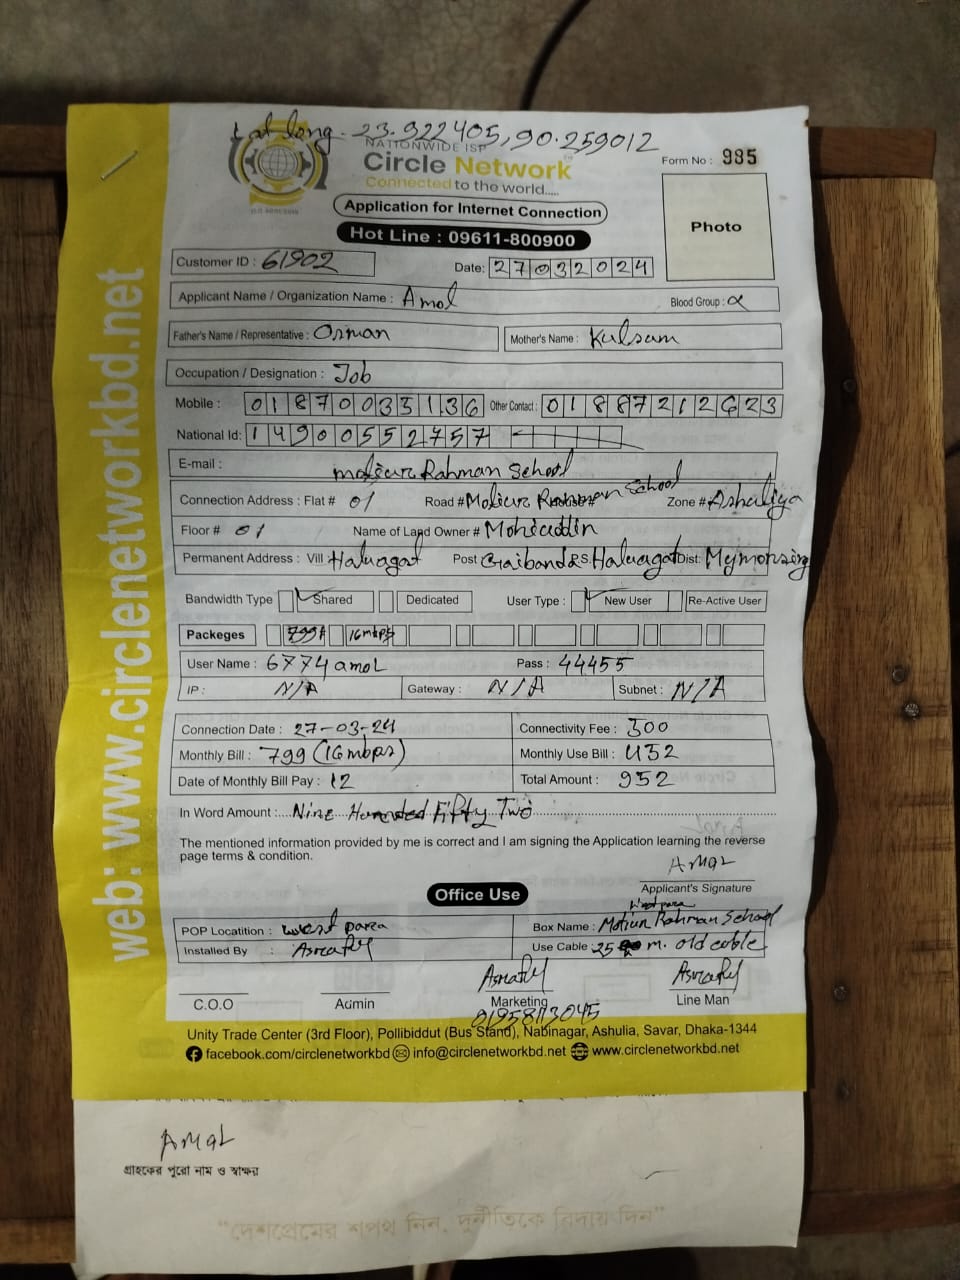 Lat long - 23.922405, 90.259012
NATIONWIDE ISP
Circle Network
Connected to the world.....
Form No : 985
Application for Internet Connection
Photo
Hot Line : 09611-800900
Customer ID : 61902
Date: 27032024
Applicant Name / Organization Name : Amol
Blood Group :
Father's Name / Representative : Osman
Mother's Name : Kulsum
Occupation / Designation : Job
Mobile : 01870035136 Other Contact : 01887212623
National Id: 14900552757
E-mail :
Motiur Rahman School
Connection Address : Flat # 01 Road # Motiur Rahman School House # Zone # Ashuliya
Floor # 01 Name of Land Owner # Mohiuddin
Permanent Address : Vill Haluagat Post Gaibanda P.S. Haluagat Dist: Mymonsing
Bandwidth Type Shared Dedicated User Type : New User Re-Active User
Packeges 799 16mbps
User Name : 6774amol Pass : 44455
IP : N/A Gateway : N/A Subnet : N/A
Connection Date : 27-03-24 Connectivity Fee : 300
Monthly Bill : 799 (16mbps) Monthly Use Bill : 452
Date of Monthly Bill Pay : 12 Total Amount : 952
In Word Amount : Nine Hundred Fifty Two
The mentioned information provided by me is correct and I am signing the Application learning the reverse
page terms & condition.
Amol
Applicant's Signature
Office Use
West para
POP Locatition : West para Box Name : Motiur Rahman School
Installed By : Asraful Use Cable : 25 m. old cable
Asraful Asraful
C.O.O Admin Marketing Line Man
01958113045
Unity Trade Center (3rd Floor), Pollibiddut (Bus Stand), Nabinagar, Ashulia, Savar, Dhaka-1344
facebook.com/circlenetworkbd info@circlenetworkbd.net www.circlenetworkbd.net
web: www.circlenetworkbd.net
Amol
গ্রাহকের পুরো নাম ও স্বাক্ষর
“দেশপ্রেমের শপথ নিন, দুর্নীতিকে বিদায় দিন”